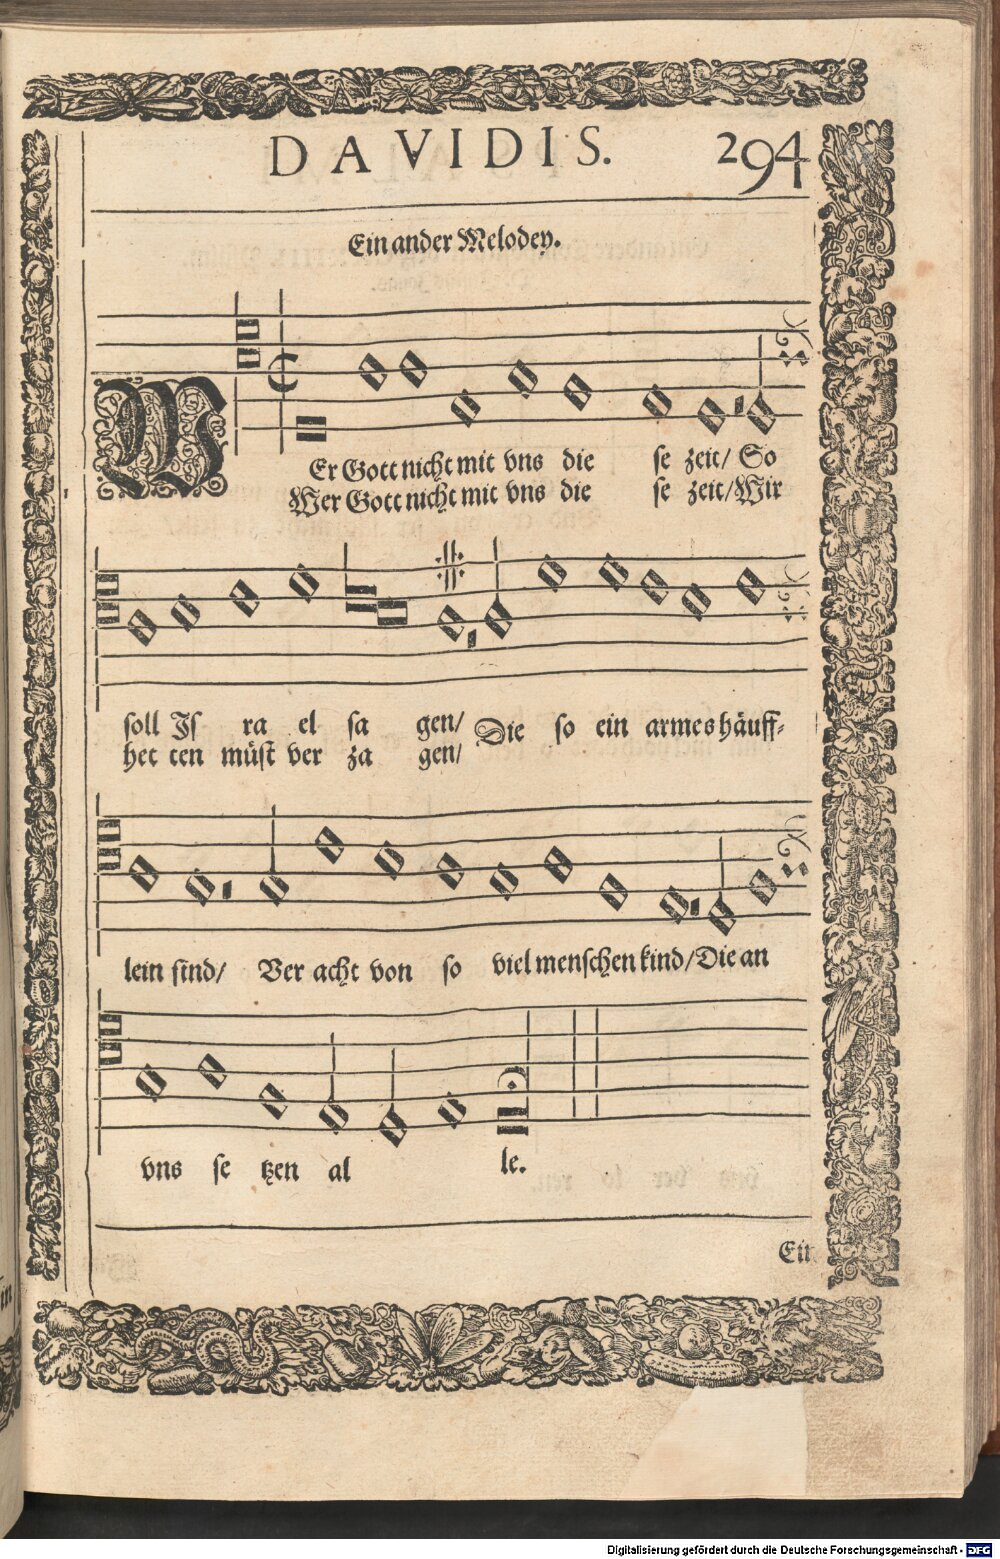 DAVIDIS. 294
Ein ander Melodey.
WEr Gott nicht mit vns die se zeit/ So
Wer Gott nicht mit vns die se zeit/ Wir
soll Is ra el sa gen/ Die so ein armes häuff-
het ten müst ver za gen/
lein sind/ Ver acht von so viel menschen kind/ Die an
vns se tzen al le.
Ein
Digitalisierung gefördert durch die Deutsche Forschungsgemeinschaft - DFG